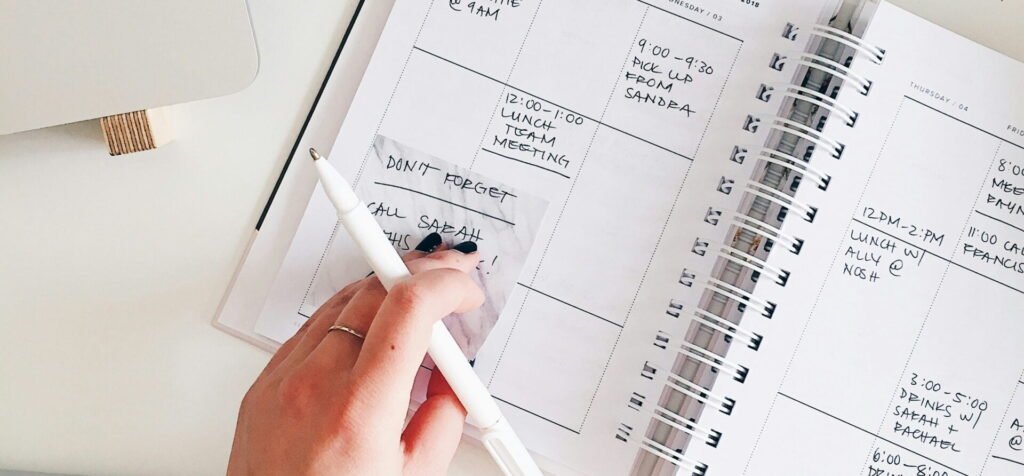 @ 9AM
WEDNESDAY / 03
2018
9:00-9:30
PICK UP
FROM
SANDRA
12:00-1:00
LUNCH
TEAM
MEETING
DON'T FORGET
CALL SARAH
!
THURSDAY / 04
12PM-2:PM
LUNCH W/
ALLY @
NOSH
3:00-5:00
DRINKS W/
SARAH +
RACHAEL
6:00 - 8:00
8:00
11:00